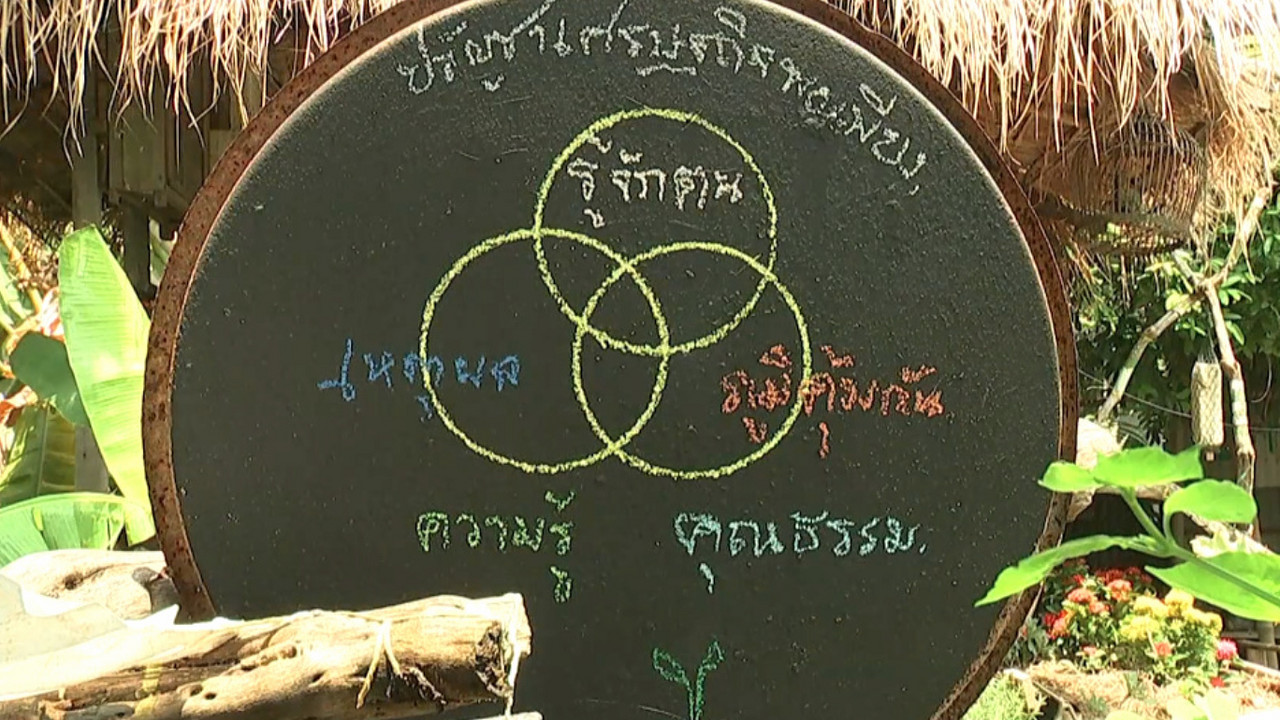 ปรัชญาเศรษฐกิจพอเพียง
รู้จักตน
เหตุผล
ภูมิคุ้มกัน
ความรู้
คุณธรรม.